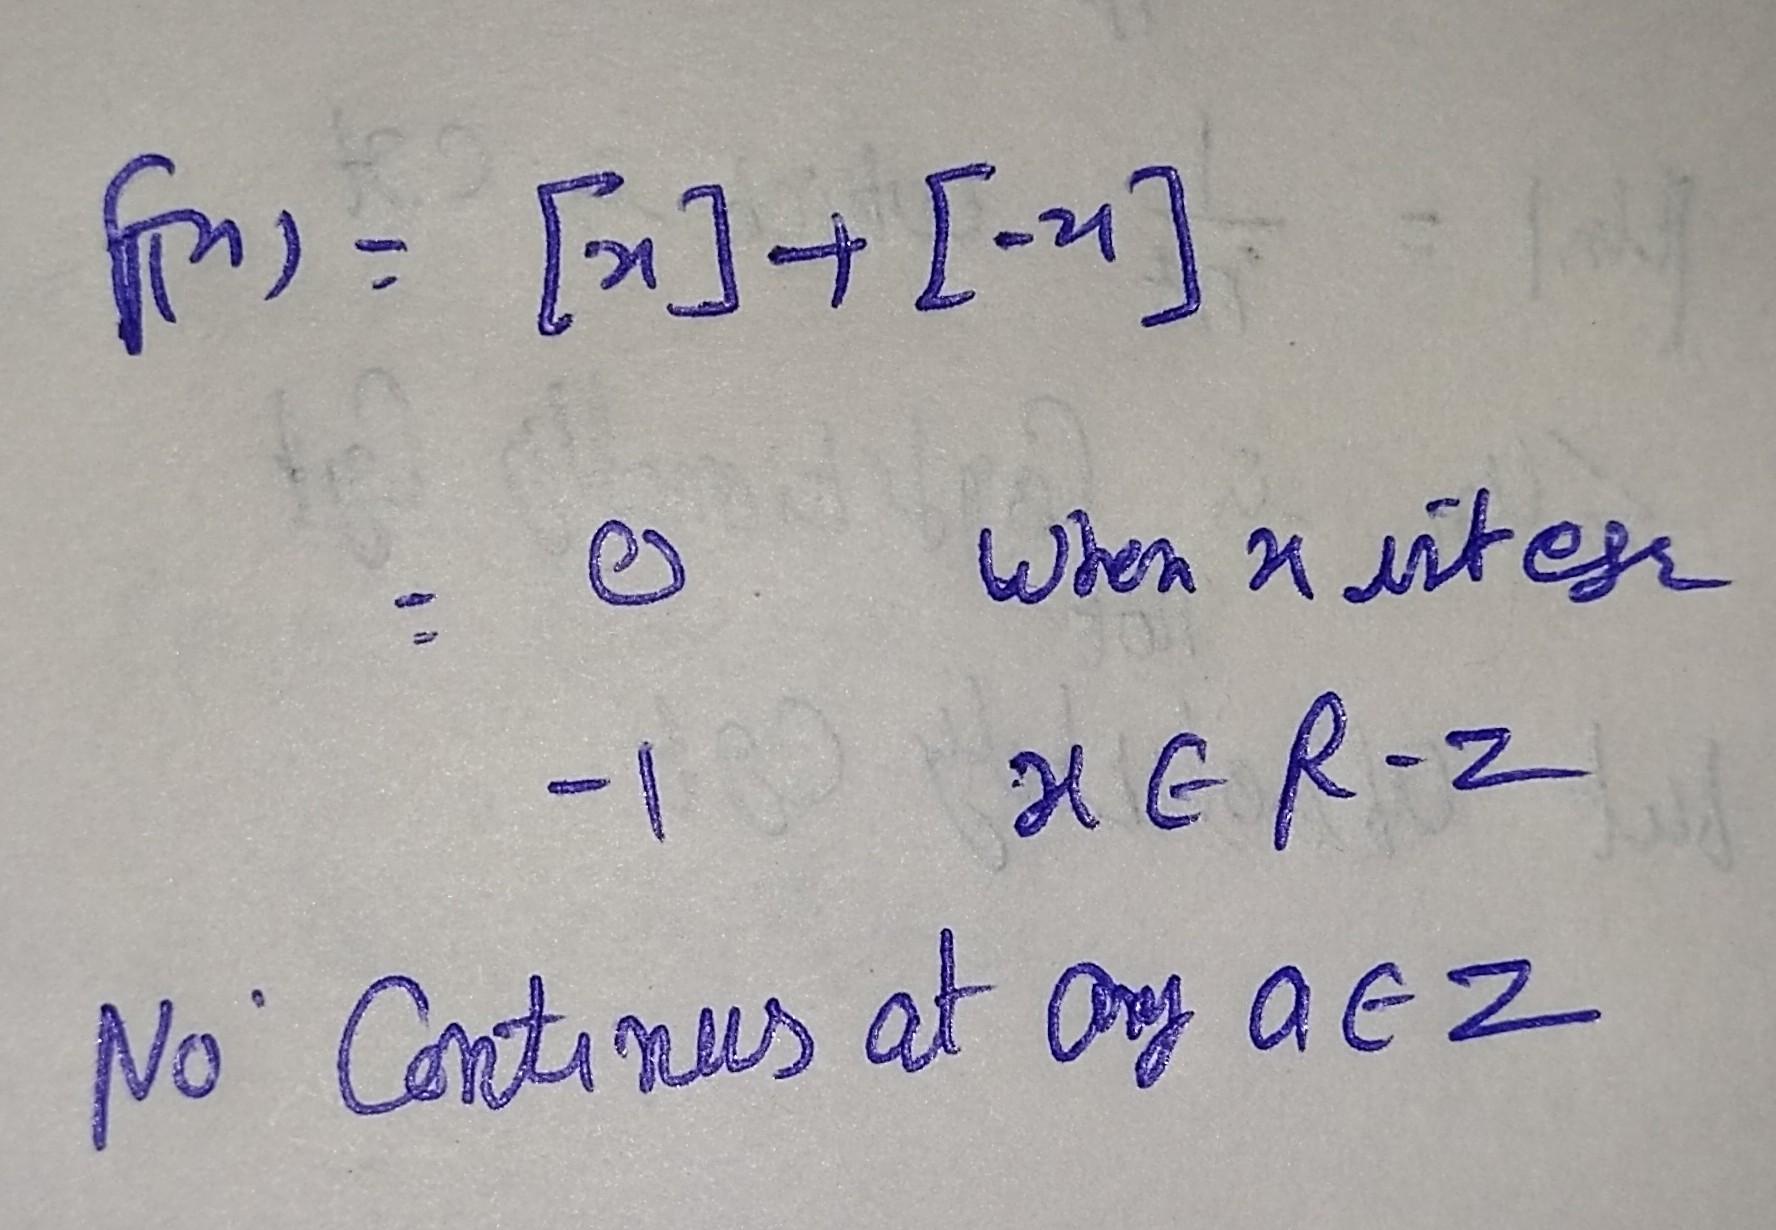 f(x) = [x] + [-x]
= 0 when x integer
-1 x ∈ R - Z
No Continuus at any a ∈ Z